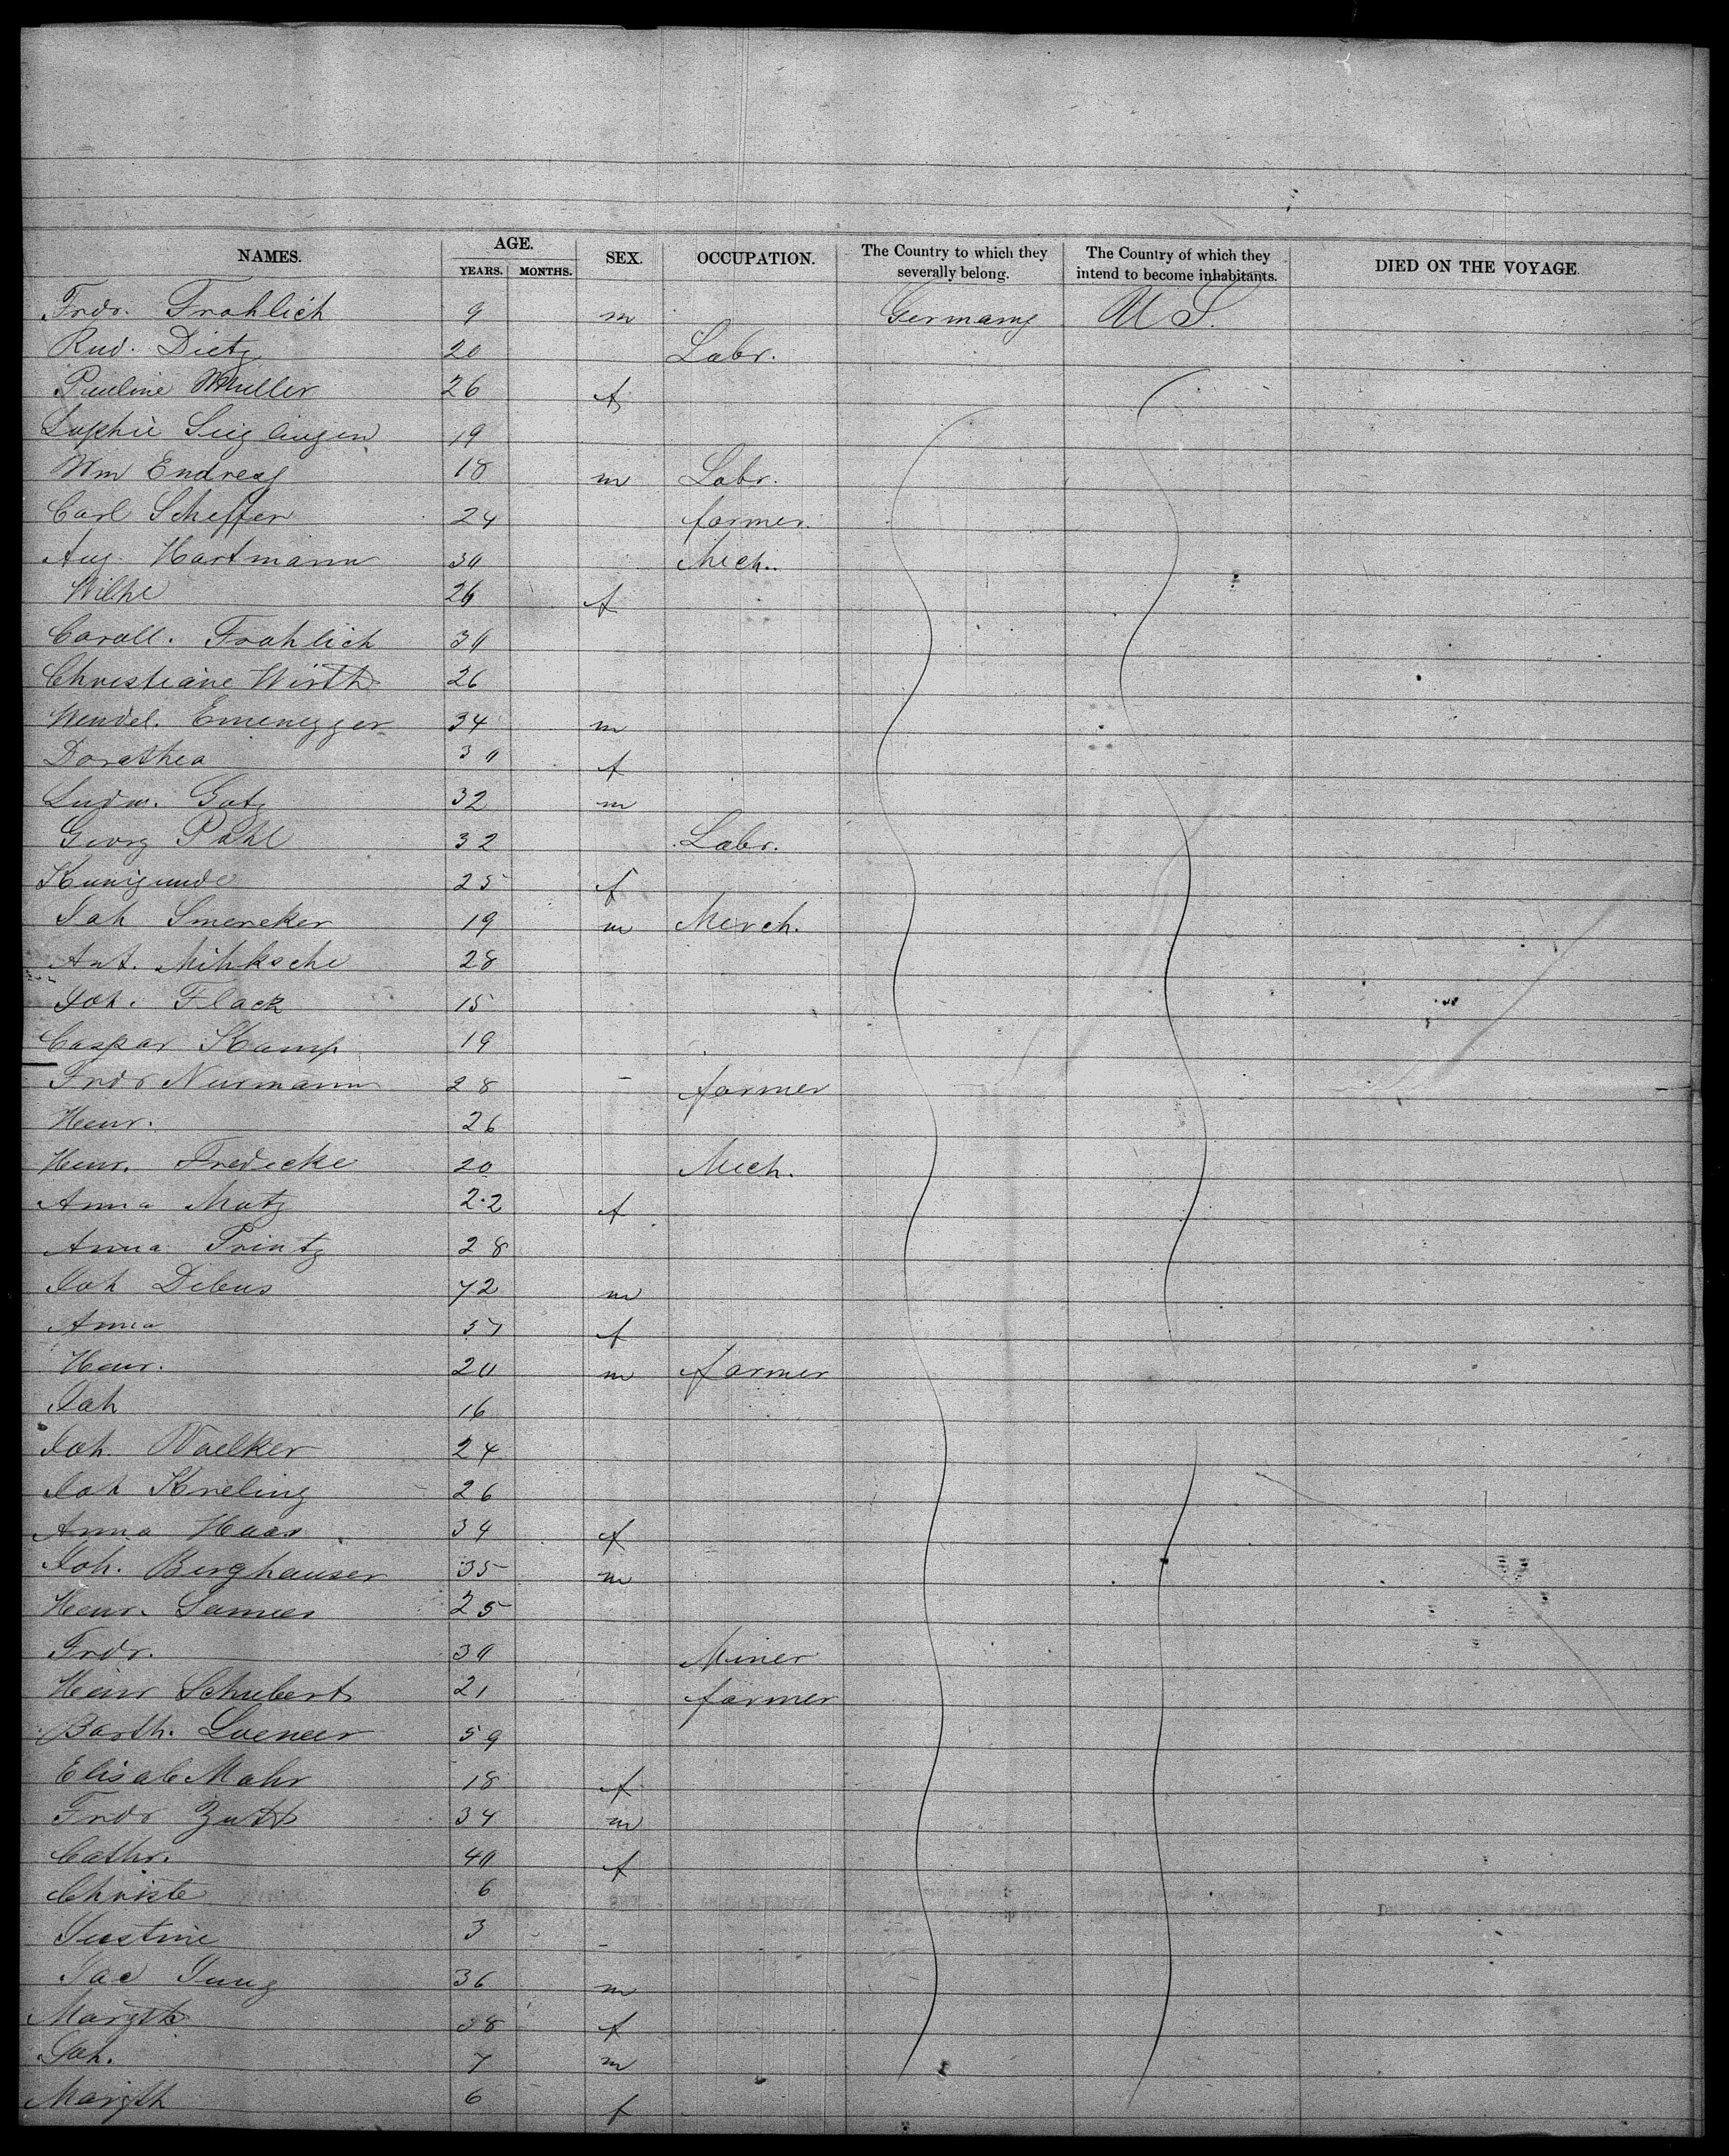 NAMES. AGE. SEX. OCCUPATION. The Country to which they severally belong. The Country of which they intend to become inhabitants. DIED ON THE VOYAGE.
YEARS. MONTHS.
Frdr. Frohlich 9 m Germany U S.
Rud. Dietz 20 Labr.
Pauline Muller 26 f
Sophie 19
Wm Endress 18 m Labr.
Carl Scheffer 24 farmer
Aug. Hartmann 30 Mech.
Wilhe 26 f
Caroll. Frohlich 30
Christiane Wirth 26
Wendel. Emenegger 34 m
Dorothea 30 f
Ludw. Gotz 32 m
Georg Pohl 32 Labr.
Kunigunde 25 f
Joh Smereker 19 m Merch.
Ant. Mihksche 28
Joh. Flack 15
Caspar Kamp 19
Frdr Neumann 28 farmer
Henr. 26
Henr. Fredecke 20 Mech.
Anna Motz 22 f
Anna Printz 28
Joh Debus 72 m
Anna 57 f
Henr. 20 m farmer
Joh 16
Joh. Woelker 24
Joh Kreling 26
Anna Haas 34 f
Joh. Berghauser 35 m
Henr. 25
Frdr. 30 Miner
Henr Schubert 21 farmer
Barth. 59
Elisab Mohr 18 f
Frdr Zutt 34 m
Cathr. 40 f
Christe 6
Justine 3
Jac Jung 36 m
Margth 38 f
Joh. 7 m
Margth 6 f